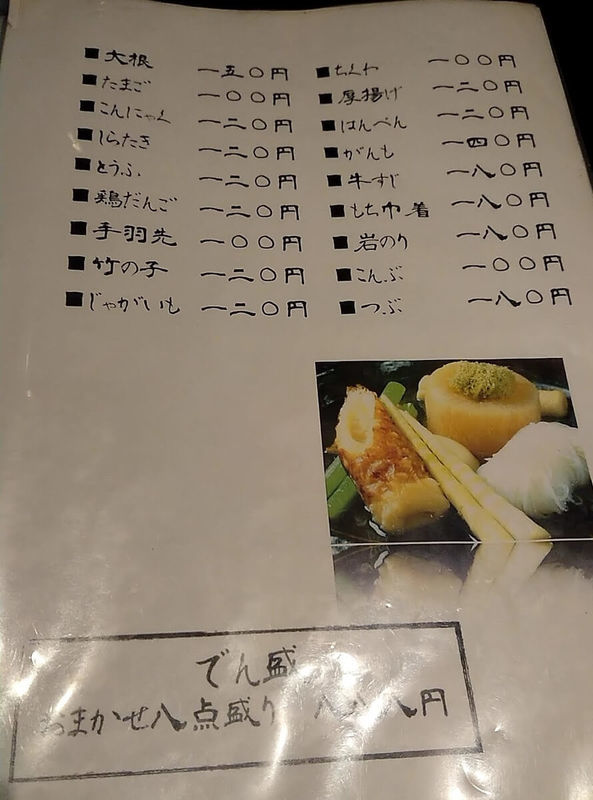 ■大根 一五〇円
■たまご 一〇〇円
■こんにゃく 一二〇円
■しらたき 一二〇円
■とうふ 一二〇円
■鶏だんご 一二〇円
■手羽先 一〇〇円
■竹の子 一二〇円
■じゃがいも 一二〇円
■ちくわ 一〇〇円
■厚揚げ 一二〇円
■はんぺん 一二〇円
■がんも 一四〇円
■牛すじ 一八〇円
■もち巾着 一八〇円
■岩のり 一八〇円
■こんぶ 一〇〇円
■つぶ 一八〇円
でん盛
おまかせ八点盛り 八八八円